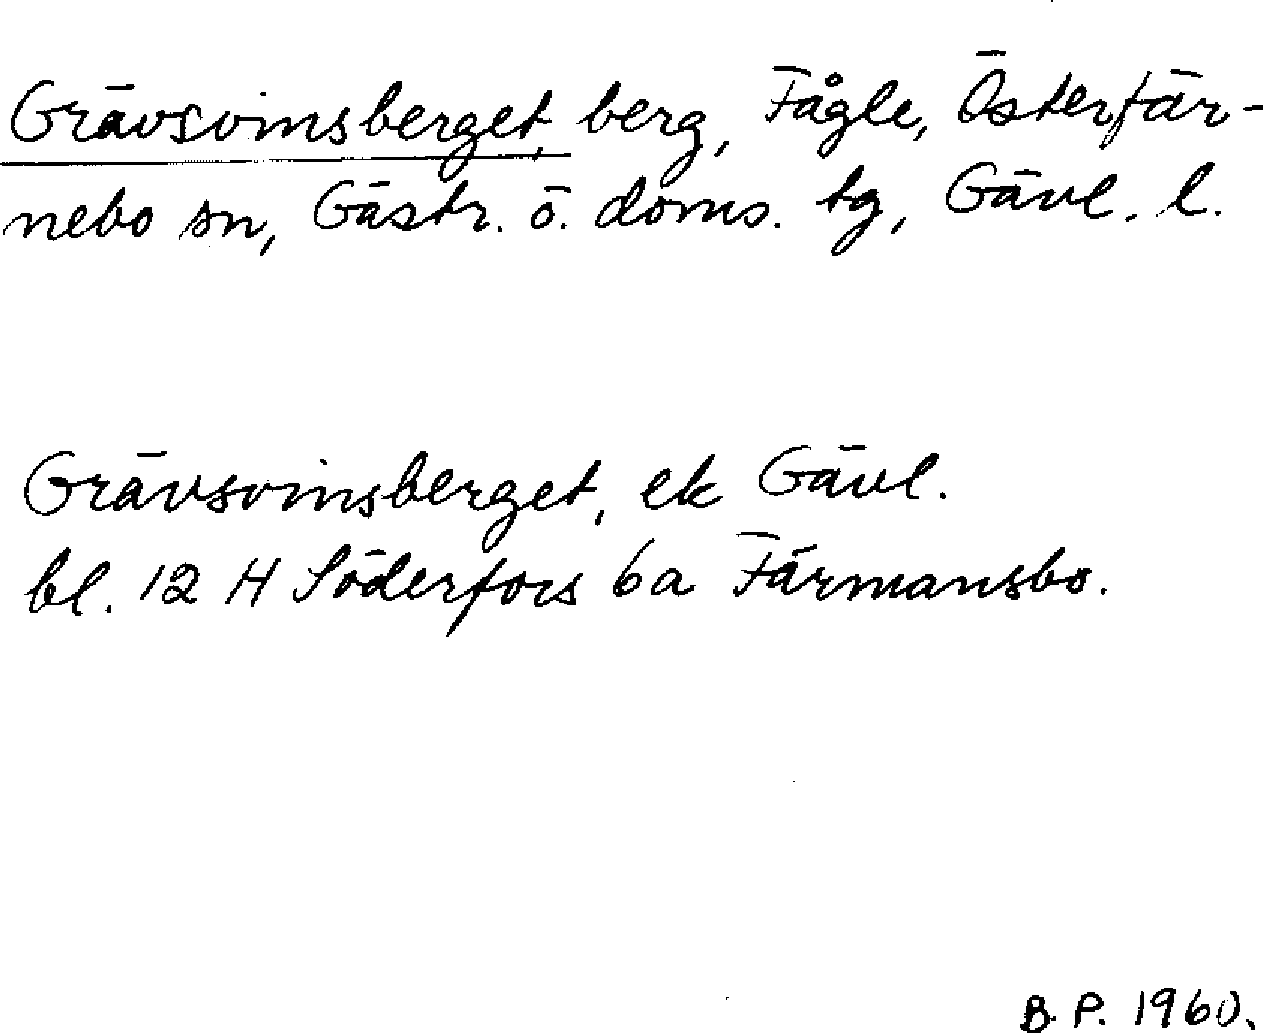 Grävsvinsberget, berg, Fågle, Österfär-
nebo sn, Gästr. ö. doms. tg, Gävl. l.
Grävsvinsberget, ek Gävl.
bl. 12 H Söderfors 6a Färmansbo.
B.P. 1960.